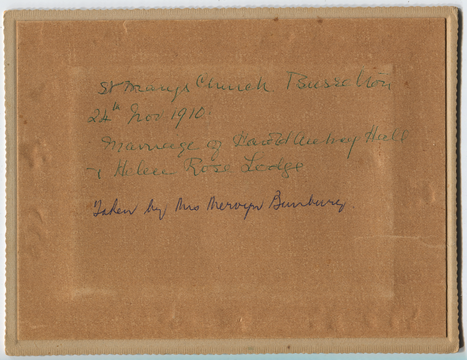 St Mary's Church Busselton
24th Nov 1910.
Marriage of
& Helen Rose Lodge
Taken by Mrs Mervyn Bunbury.